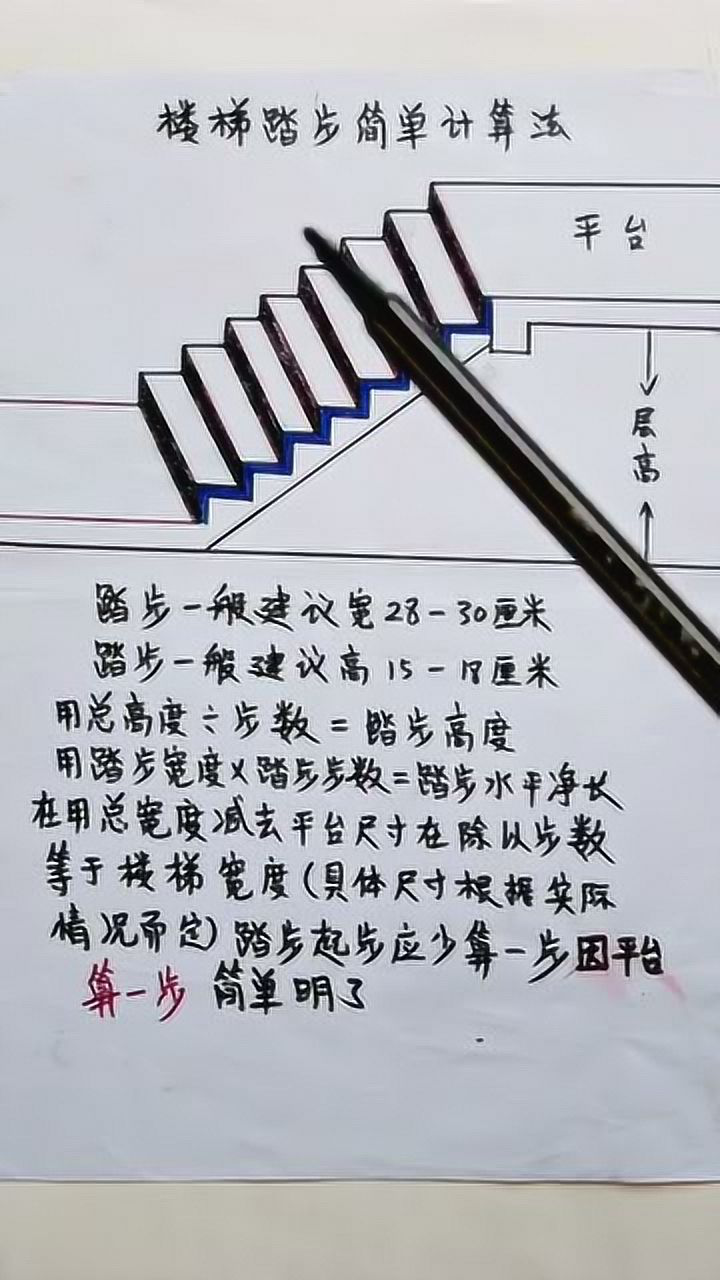 楼梯踏步简单计算法
平台
层高
踏步一般建议宽28-30厘米
踏步一般建议高15-18厘米
用总高度÷步数=踏步高度
用踏步宽度×踏步步数=踏步水平净长
在用总宽度减去平台尺寸在除以步数
等于楼梯宽度(具体尺寸根据实际
情况而定)踏步起步应少算一步因平台
算一步 简单明了